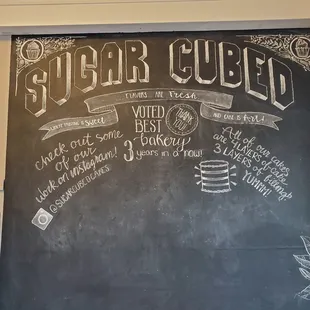 SUGAR CUBED
FLAVORS ARE Fresh
SWEET
AND CAKE IS
VOTED
BEST
bakery
3 years in a row!
THANK
YOU
check out some
of our
work on instagram!
@SUGARCUBEDCAKES
All of our cakes
are 4 LAYERS of cake
3 LAYERS of
filling
YUMM!